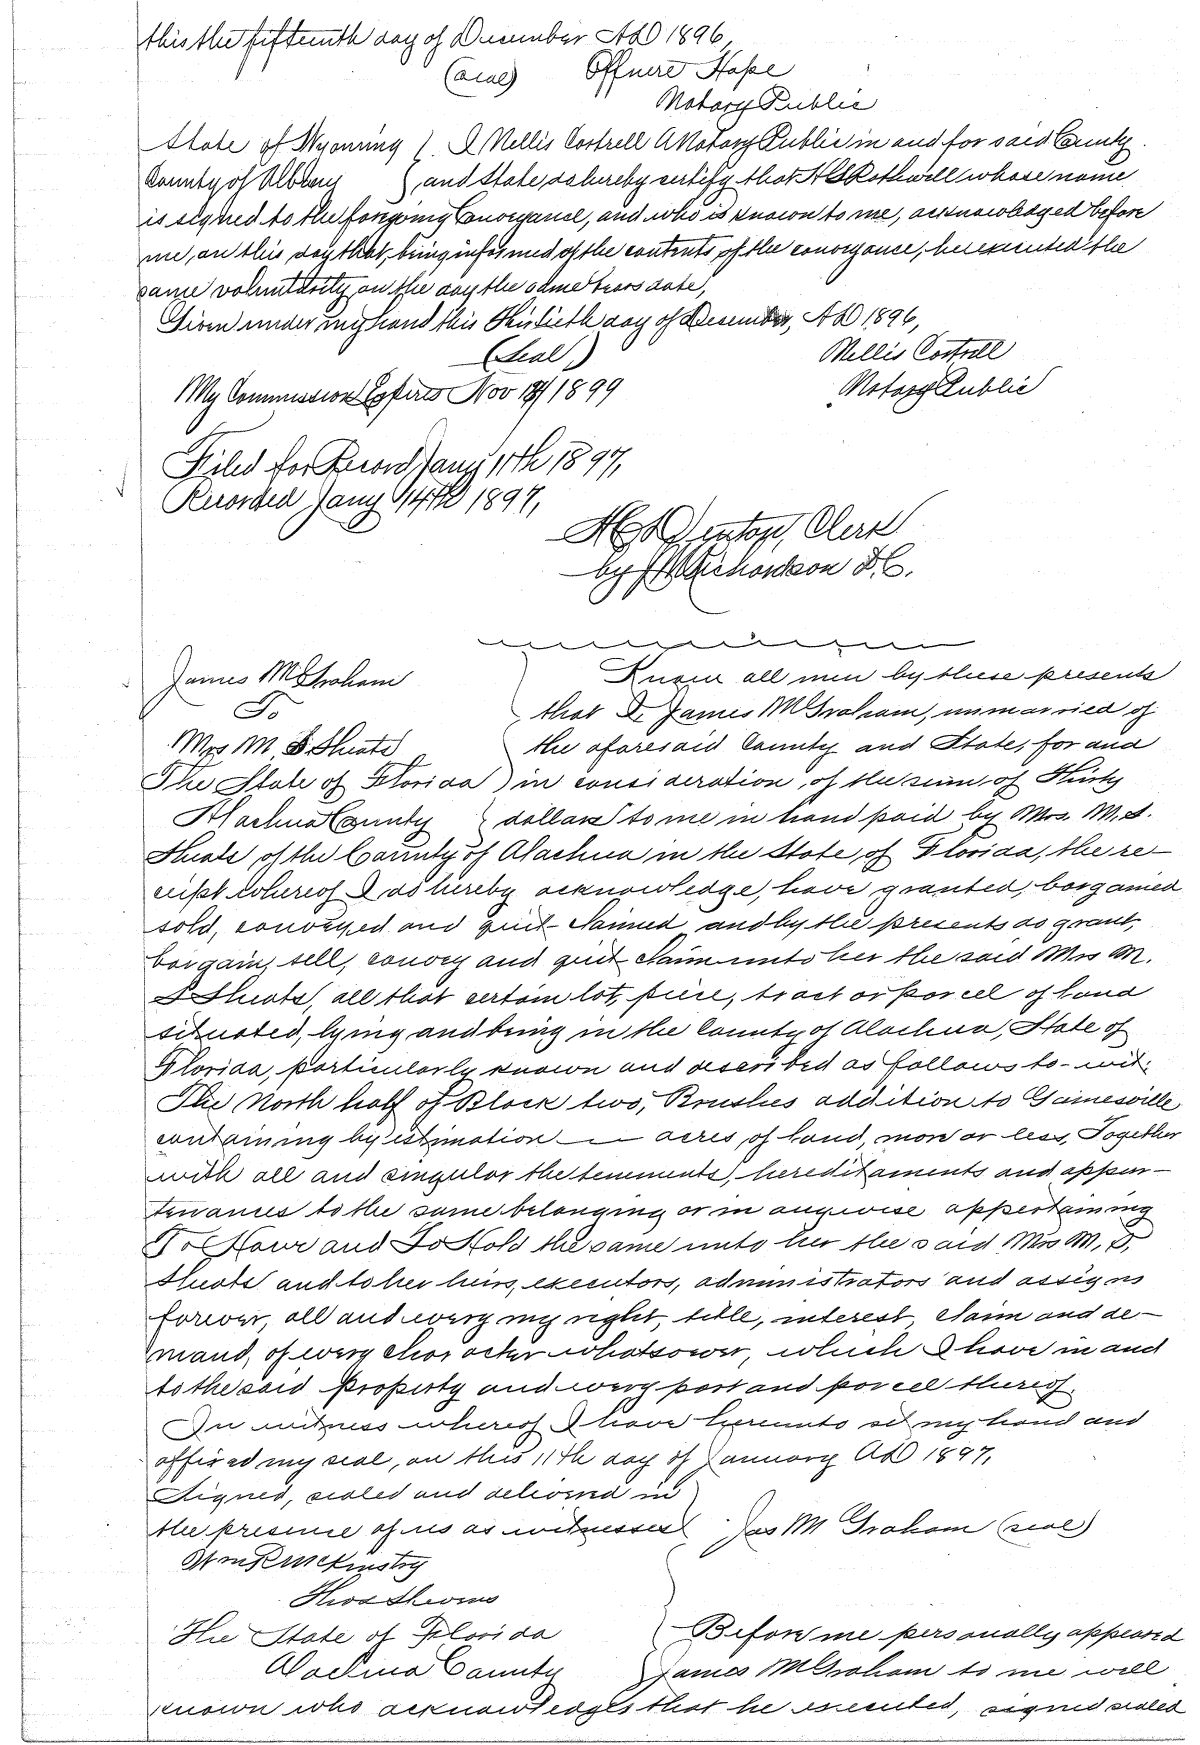 this the fifteenth day of December AD 1896,
(seal) Offnere Hope
Notary Public
State of Wyoming } I Nellis Corthell A Notary Public in and for said County
County of Albany } and State do hereby certify that Rothwell whose name
is signed to the foregoing Conveyance, and who is known to me, acknowledged before
me, on this day that, being informed of the contents, of the conveyance, he executed the
same voluntarily, on the day the same bears date,
Given under my hand this Thirtieth day of December, AD 1896,
(Seal) Nellis Corthell
My Commission Expires Nov 1899 Notary Public
Filed for Record Jany 11th 1897,
Recorded Jany 14th 1897,
Denton, Clerk
by Richardson D.C.
James M Graham } Know all men by these presents
To that I, James M Graham, unmarried of
Mrs M S Sheats the aforesaid County and State, for and
The State of Florida } in consideration, of the sum of Thirty
Alachua County } dollars to me in hand paid by Mrs. M. S.
Sheats of the County of Alachua in the State, of Florida, the re-
ceipt whereof I do hereby acknowledge, have granted, bargained
sold, conveyed and quit-claimed and by the presents do grant,
bargain, sell, convey and quit claim unto her the said Mrs M.
S Sheats, all that certain lot, piece, tract or parcel of land
situated, lying and being in the County of Alachua, State of
Florida, particularly known and described as follows to-wit:
The North half of Block two, Brushes addition to Gainesville
containing by estimation — acres, of land, more or less, Together
with all and singular the tenements, hereditaments and appur-
tenances to the same belonging or in anywise appertaining
To Have and To Hold the same unto her the said Mrs M, S,
Sheats and to her heirs, executors, administrators and assigns
forever, all and every my right, title, interest, claim and de-
mand, of every character whatsoever, which I have in and
to the said property and every part and parcel thereof.
In witness whereof I have hereunto set my hand and
affixed my seal, on this 11th day of January AD 1897,
Signed, sealed and delivered in
the presence of us as witnesses } Jas M Graham (seal)
Wm R McKinstry
The State of Florida } Before me personally appeared
Alachua County } James M Graham to me well
known who acknowledges that he executed, signed sealed